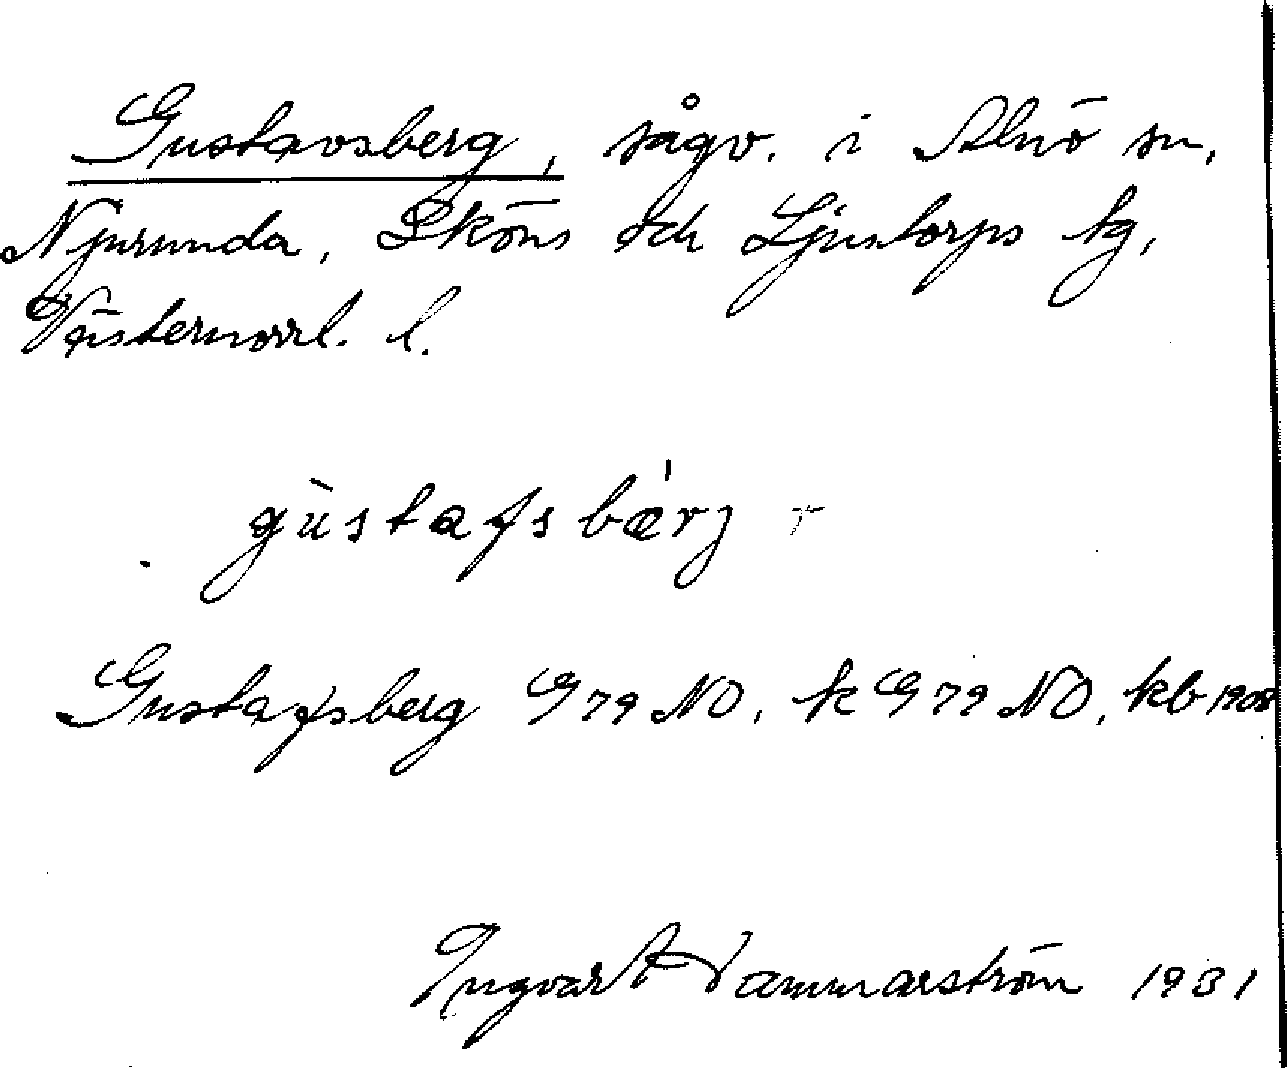 Gustavsberg, sågv. i Alnö sn,
Njurunda, Sköns och Ljustorps tg,
Västernorrl. l.
gùstafsbǽrj
Gustafsberg G79 NO, k G79 NO, kb 1908
Ingvar Hammarström 1931